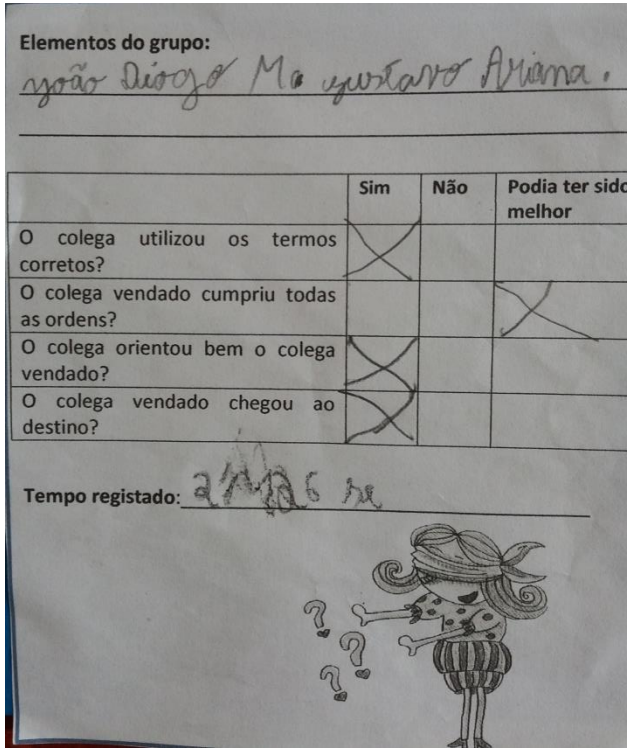 Elementos do grupo:
João Diogo Ma Gustavo Ariana.
Sim Não Podia ter sido
melhor
O colega utilizou os termos
corretos?
O colega vendado cumpriu todas
as ordens?
O colega orientou bem o colega
vendado?
O colega vendado chegou ao
destino?
Tempo registado:
? ? ?